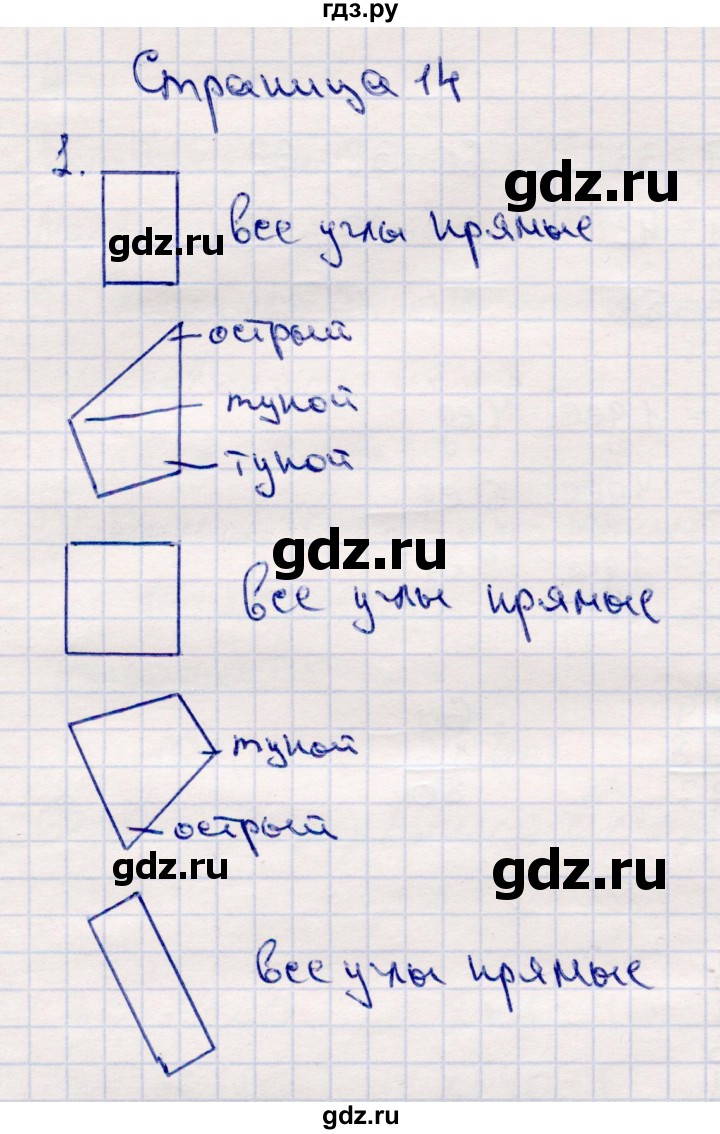 гдз.ру
Страница 14
1.
gdz.ru
gdz.ru
все углы прямые
острый
тупой
тупой
gdz.ru
все углы прямые
тупой
острый
gdz.ru
gdz.ru
все углы прямые
gdz.ru